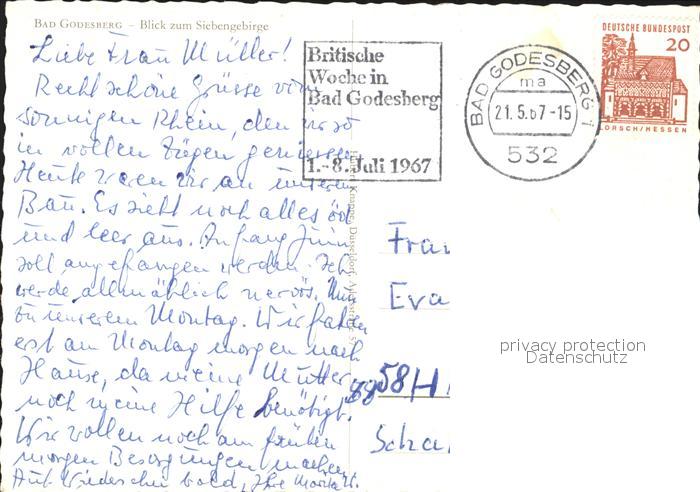 BAD GODESBERG – Blick zum Siebengebirge
Liebe Frau Müller!
Recht schöne Grüsse vom
sonnigen Rhein, den wir so
in vollen Zügen geniessen
Heute waren wir an unserem
Bau. Es sieht noch alles öd
und leer aus. Anfang Juni
soll angefangen werden. Ich
werde allmählich nervös. Nun
zu unserem Montag. Wir fahren
erst am Montag morgen nach
Hause, da meine Mutter
noch meine Hilfe benötigt.
Wir wollen noch am frühen
morgen Besorgungen machen.
Auf Wiedersehen bald, Ihre
Britische
Woche in
Bad Godesberg
1.-8. Juli 1967
BAD GODESBERG 1
ma
21.5.67-15
532
DEUTSCHE BUNDESPOST
20
LORSCH/HESSEN
Krappe, Düsseldorf,
Frau
Eva
58 H
Scha
privacy protection
Datenschutz